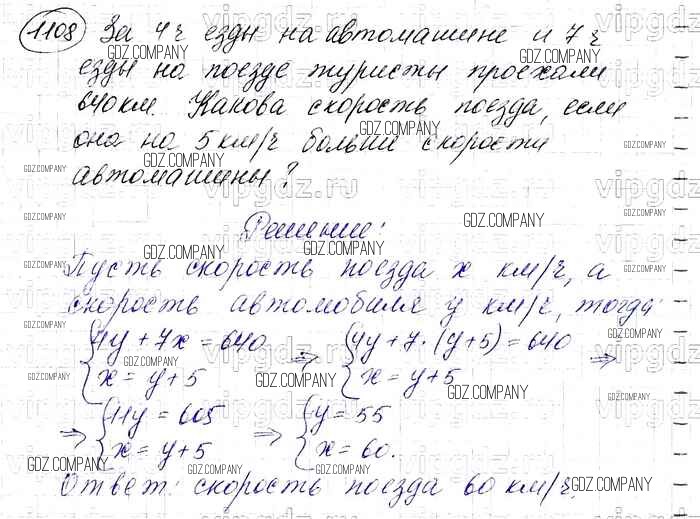 1108 За 4 ч езды на автомашине и 7 ч
езды на поезде туристы проехали
640 км. Какова скорость поезда, если
она на 5 км/ч больше скорости
автомашины?
Решение:
Пусть скорость поезда x км/ч, а
скорость автомобиля y км/ч, тогда:
{4y + 7x = 640 ⇒ {4y + 7·(y+5) = 640 ⇒
{x = y + 5 {x = y + 5
⇒ {11y = 605 ⇒ {y = 55
{x = y + 5 {x = 60.
Ответ: скорость поезда 60 км/ч.
GDZ.COMPANY
vipgdz.ru